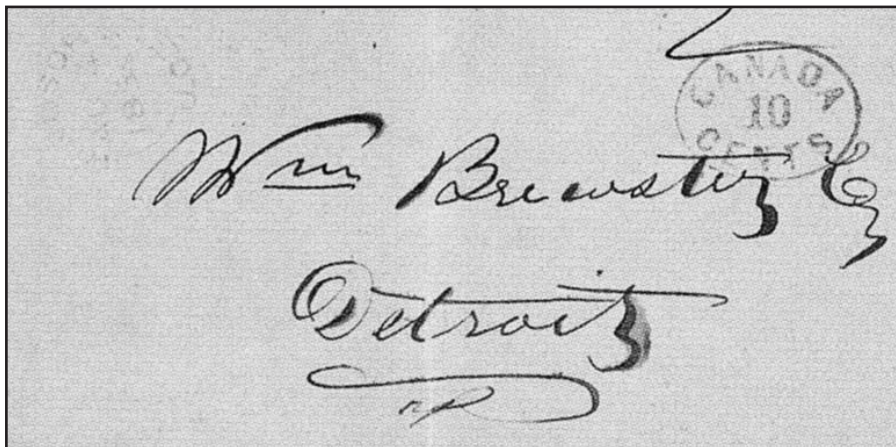 CANADA
10
CENTS
Wm Brewster
Detroit